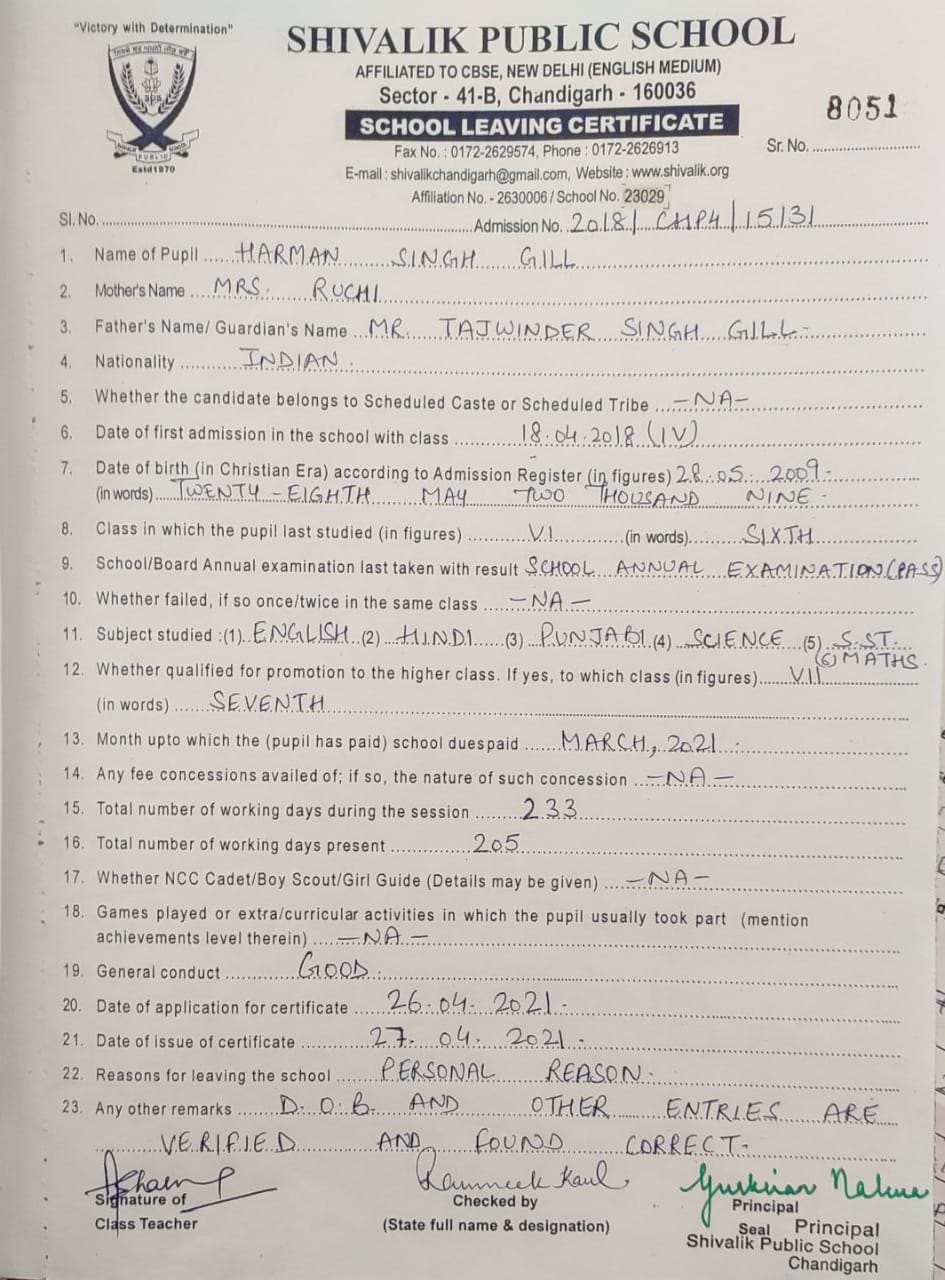 "Victory with Determination"
SHIVALIK PUBLIC SCHOOL
AFFILIATED TO CBSE, NEW DELHI (ENGLISH MEDIUM)
Sector - 41-B, Chandigarh - 160036
SCHOOL LEAVING CERTIFICATE
8051
Fax No. : 0172-2629574, Phone : 0172-2626913
Sr. No.
E-mail : shivalikchandigarh@gmail.com, Website : www.shivalik.org
Affiliation No. - 2630006 / School No. 23029
SPS
PUBLIC
Estd 1970
Sl. No. Admission No. 2018/ CHP4/15131
1. Name of Pupil HARMAN SINGH GILL
2. Mother's Name MRS. RUCHI
3. Father's Name/ Guardian's Name MR. TAJWINDER SINGH GILL-
4. Nationality INDIAN.
5. Whether the candidate belongs to Scheduled Caste or Scheduled Tribe -NA-
6. Date of first admission in the school with class 18.04.2018 (IV)
7. Date of birth (in Christian Era) according to Admission Register (in figures) 28.05.2009-
(in words) TWENTY-EIGHTH MAY TWO THOUSAND NINE-
8. Class in which the pupil last studied (in figures) VI (in words) SIXTH
9. School/Board Annual examination last taken with result SCHOOL ANNUAL EXAMINATION (PASS)
10. Whether failed, if so once/twice in the same class -NA-
11. Subject studied :(1) ENGLISH (2) HINDI (3) PUNJABI (4) SCIENCE (5) S.ST.
(6) MATHS.
12. Whether qualified for promotion to the higher class. If yes, to which class (in figures) VII
(in words) SEVENTH
13. Month upto which the (pupil has paid) school duespaid MARCH, 2021.
14. Any fee concessions availed of; if so, the nature of such concession -NA-
15. Total number of working days during the session 233
16. Total number of working days present 205
17. Whether NCC Cadet/Boy Scout/Girl Guide (Details may be given) -NA-
18. Games played or extra/curricular activities in which the pupil usually took part (mention
achievements level therein) -NA-
19. General conduct GOOD.
20. Date of application for certificate 26.04.2021-
21. Date of issue of certificate 27.04.2021-
22. Reasons for leaving the school PERSONAL REASON.
23. Any other remarks D.O.B. AND OTHER ENTRIES ARE
VERIFIED AND FOUND CORRECT-
Ramneek Kaul
Signature of
Class Teacher
Checked by
(State full name & designation)
Principal
Seal Principal
Shivalik Public School
Chandigarh